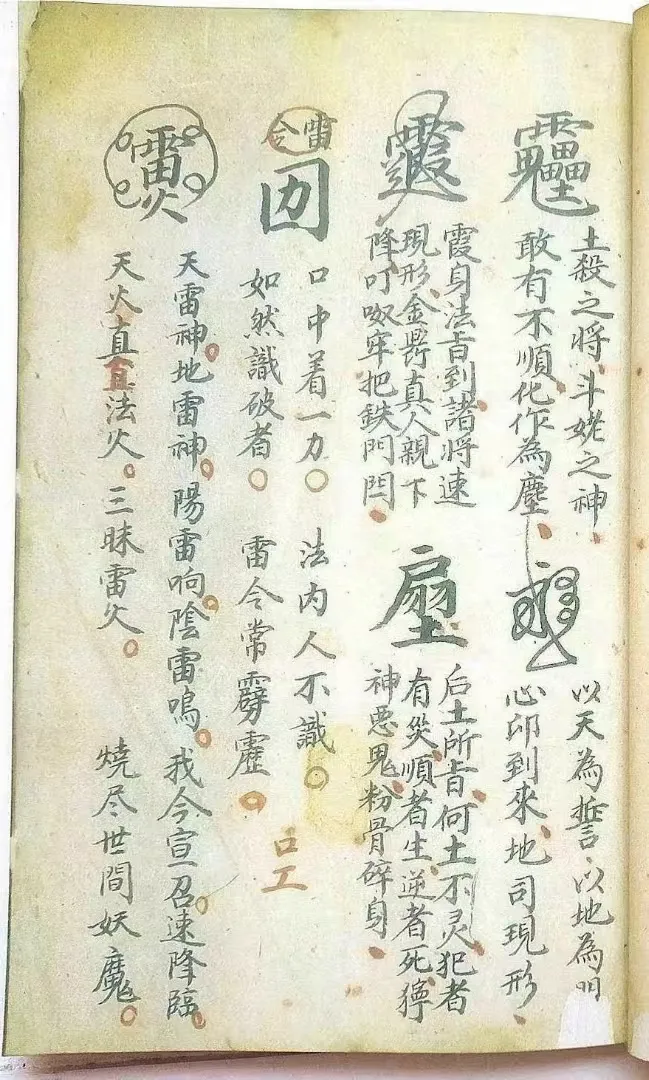 土殺之將、斗姥之神、
敢有不順、化作為塵、
以天為誓、以地為明
心印到來、地司現形、
霞身法旨到、諸將速
現形、金霛真人親下
降、叮嗷牢把鉄門閂、
后土所旨、何土不灵、犯者
有災、順者生、逆者死、獰
神惡鬼、粉骨碎身、
雷令
囗中着一力。 法内人不識。
如然識破者。 雷令常霹靂。
口工
天雷神、地雷神、陽雷响、陰雷鳴。我今宣召速降臨、
天火真真法火。三昧雷火。 燒尽世間妖魔。